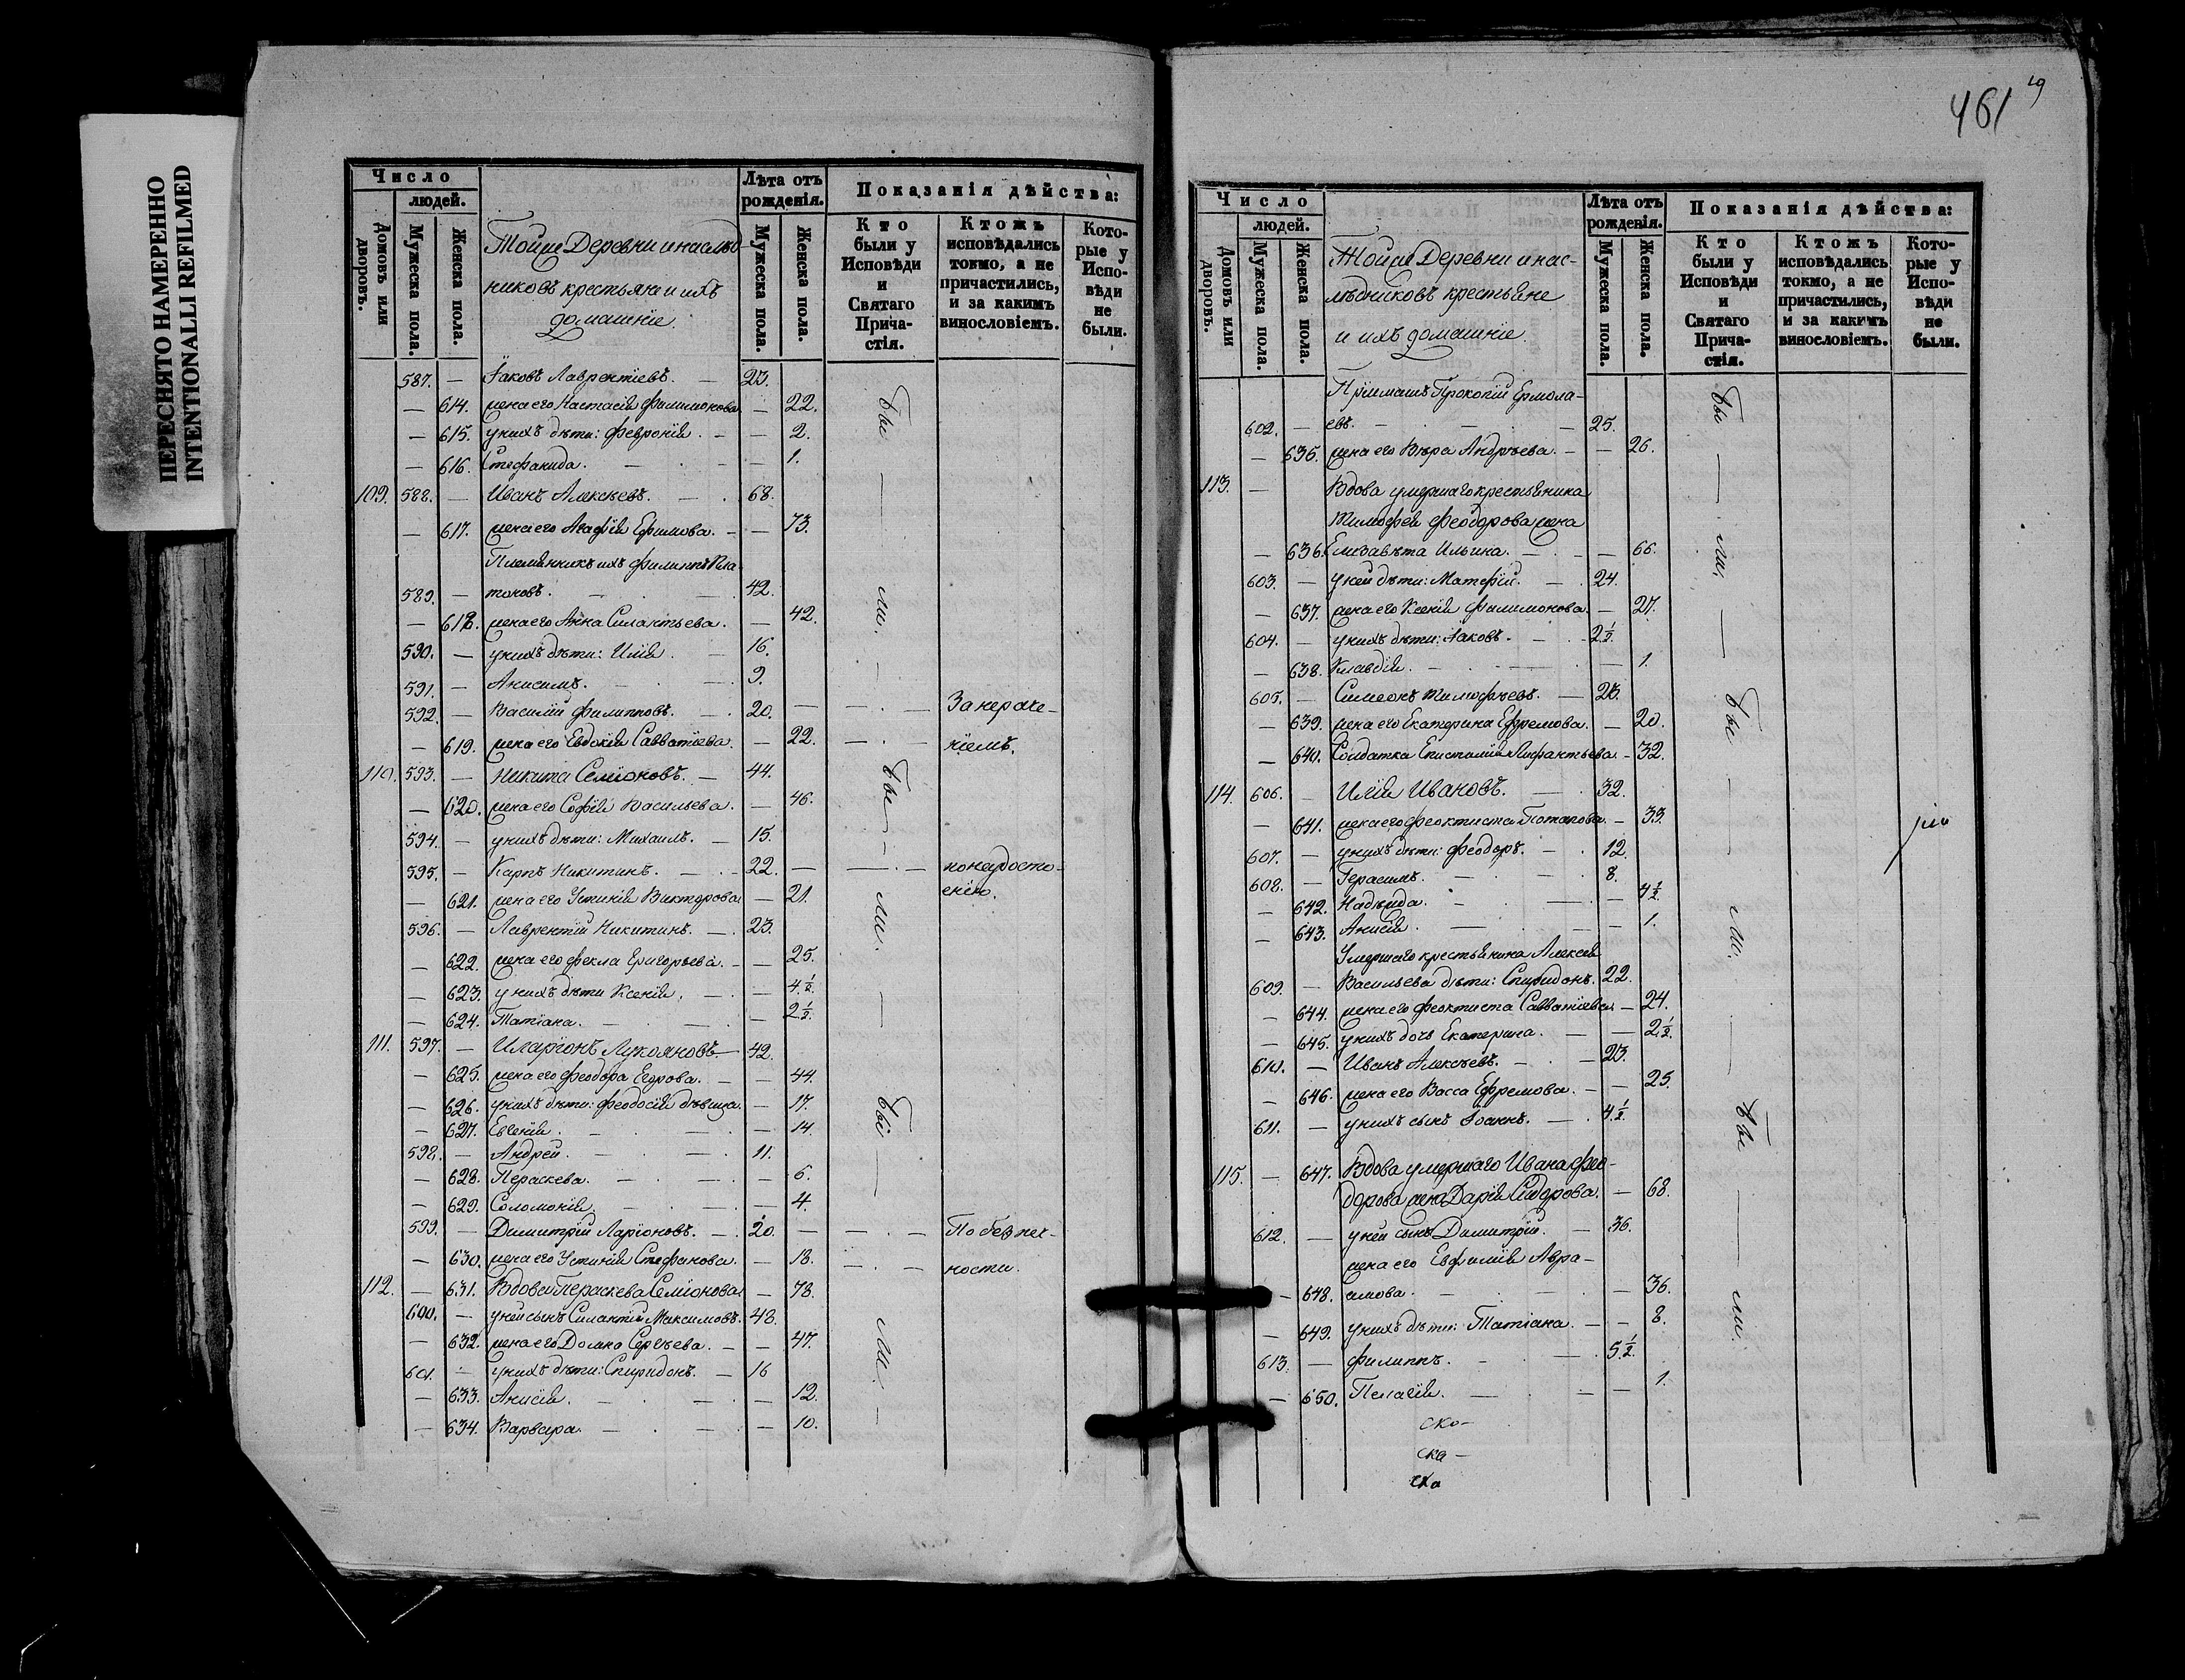 ПЕРЕСНЯТО НАМЕРЕННО
INTENTIONALLI REFILMED
Число
людей.
Домовъ или дворовъ.
Мужеска пола.
Женска пола.
Тойже Деревни и наслѣд
никовъ крестьяне и ихъ
домашніе.
Лѣта отъ рожденія.
Мужеска пола.
Женска пола.
Показанія дѣйства:
Кто были у Исповѣди и Святаго Причастія.
Ктожъ исповѣдались токмо, а не причастились, и за какимъ винословіемъ.
Которые у Исповѣди не были.
587. — Іаковъ Лаврентіевъ. — 23.
— 614. жена его Настасія Филимонова — 22.
— 615. у нихъ дѣти: Февронія. — — 2.
— 616. Стефанида. — — 1.
109. 588. — Иванъ Алексѣевъ. — 68.
— 617. жена его Агафія Ефимова. — — 73.
Племянникъ ихъ Филиппъ Пла
589. — тоновъ. — 42.
— 618. жена его Анна Силантьева. — 42.
590. — у нихъ дѣти: Илія. — 16.
591. — Анисимъ. 9.
592. — Василій Филипповъ. — 20. — За нераче-
— 619. жена его Евдокія Савватіева. — 22. — ніемъ.
110. 593. — Никита Семіоновъ. — 44.
— 620. жена его Софія Васильева. — 46.
594. — у нихъ дѣти: Михаилъ. — 15.
595. — Карпъ Никитинъ. — 22. — по недосто-
— 621. жена его Устинія Викторова — 21. енію.
596. — Лаврентій Никитинъ. — 23.
— 622. жена его Фекла Григорьева. — — 25.
— 623. у нихъ дѣти Ксенія. — — 4½.
— 624. Татіана. — — 2½.
111. 597. — Иларіонъ Лукояновъ — 42.
— 625. жена его Феодора Егорова. — — 44.
— 626. у нихъ дѣти: Феодосія дѣвица. — 17.
— 627. Евгенія. — — 14.
598. — Андрей. — 11.
— 628. Параскева. — — 6.
— 629. Соломонія. — — 4.
599. — Димитрій Ларіоновъ. — 20. — По безпеч-
— 630. жена его Устинія Стефанова. — 18. — ности.
112. — 631. Вдова Параскева Семіонова — 78.
600. — у ней сынъ Силантій Максимовъ. 48.
— 632. жена его Домна Сергѣева. — — 47.
601. — у нихъ дѣти: Спиридонъ. — 16
— 633. Анисія. — — 12.
— 634. Варвара. — — 10.
бы — ли. — бы — ли. — бы — ли. —
461
19
Число
людей.
Домовъ или дворовъ.
Мужеска пола.
Женска пола.
Тойже Деревни и нас-
лѣдниковъ крестьяне
и ихъ домашніе.
Лѣта отъ рожденія.
Мужеска пола.
Женска пола.
Показанія дѣйства:
Кто были у Исповѣди и Святаго Причастія.
Ктожъ исповѣдались токмо, а не причастились, и за какимъ винословіемъ.
Которые у Исповѣди не были.
Пріимашъ Прокопій Ермола-
602. — евъ. — 25.
— 635. жена его Вѣра Андрѣева. — — 26.
113. — Вдова умершаго крестьянина
Тимофея Феодорова жена
— 636. Елизавѣта Ильина. — — 66.
603. — у ней дѣти: Матфій. — 24.
— 637. жена его Ксенія Филимонова. — 27.
604. — у нихъ дѣти: Іаковъ. — 2½.
— 638. Клавдія. — — 1.
605. — Симеонъ Тимофѣевъ. — 23.
— 639. жена его Екатерина Ефремова. — 20.
— 640. Солдатка Епистимія Лифантьева. — 32.
114. 606. — Илія Ивановъ. — 32.
— 641. жена его Феоктиста Потапова. — 33.
607. — у нихъ дѣти: Феодоръ. — 12.
608. — Герасимъ. — 8.
— 642. Надежда. — — 4½
— 643. Анисія. — — 1.
Умершаго крестьянина Алексѣя
609. — Васильева дѣти: Спиридонъ. 22.
— 644. жена его Феоктиста Савватіева — 24.
— 645. у нихъ дочь Екатерина. — — 2½.
610. — Иванъ Алексѣевъ. — 23.
— 646. жена его Васса Ефремова. — — 25.
611. — у нихъ сынъ Іоаннъ. — 4½.
115. — 647. Вдова умершаго Ивана Фео-
дорова жена Дарія Сидорова. — 68.
612. — у ней сынъ Димитрій. — 36.
жена его Евфимія Авра-
— 648. амова. — — 36.
— 649. у нихъ дѣти: Татіана. — — 8.
613. — Филиппъ. — 5½.
— 650. Пелагія. — — 1.
ско-
ска-
ска
бы — ли. — бы — ли. — бы — ли.